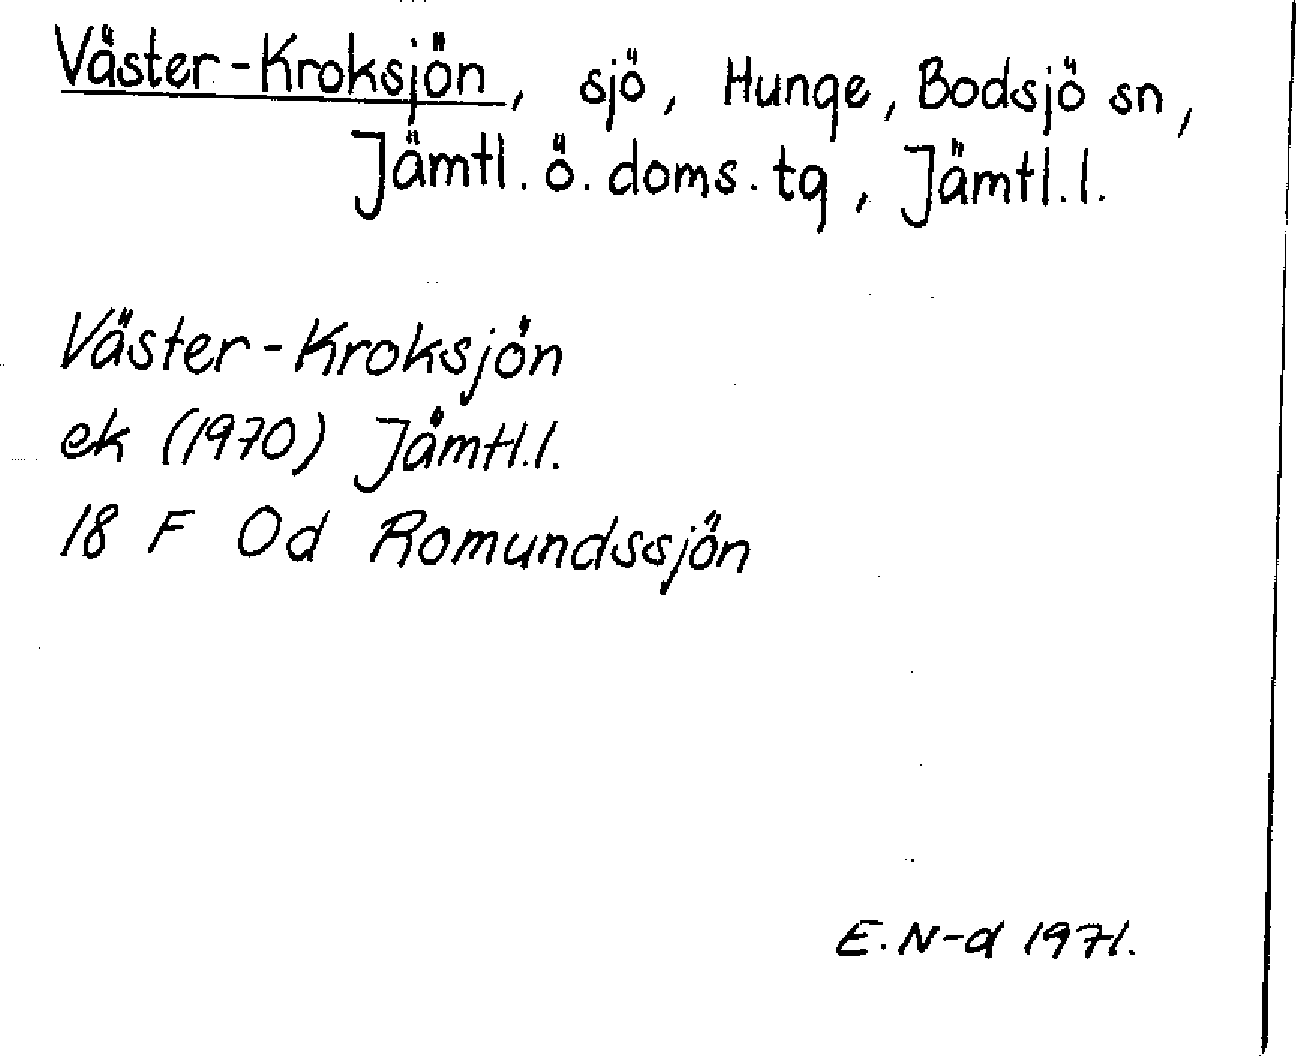 Väster-Kroksjön, sjö, Hunge, Bodsjö sn,
Jämtl. ö. doms. tg, Jämtl. l.
Väster-Kroksjön
ek (1970) Jämtl. l.
18 F Od Romundssjön
E. N-d 1971.